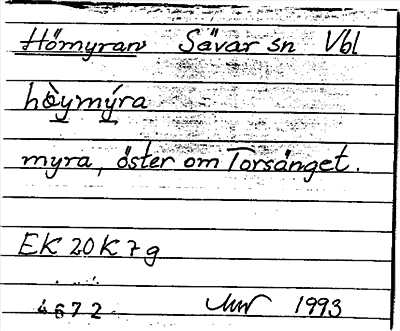 Hömyran Sävar sn Vbl
hòymýra
myra, öster om Torsänget.
EK 20K 7g
4672 1993